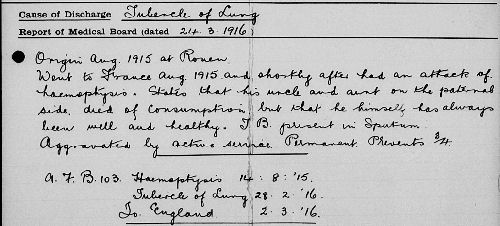 Cause of Discharge Tubercle of Lung
Report of Medical Board (dated 24.3.1916)
Origin Aug. 1915 at Rouen
Went to France Aug. 1915 and shortly after had an attack of
haemoptysis. States that his uncle and aunt on the paternal
side, died of Consumption, but that he himself, has always
been well and healthy. T.B. present in Sputum.
Aggravated by active service. Permanent. Prevents 3/4.
A.F.B. 103. Haemoptysis 14.8.'15.
Tubercle of Lung 28.2.'16.
To England 2.3.'16.